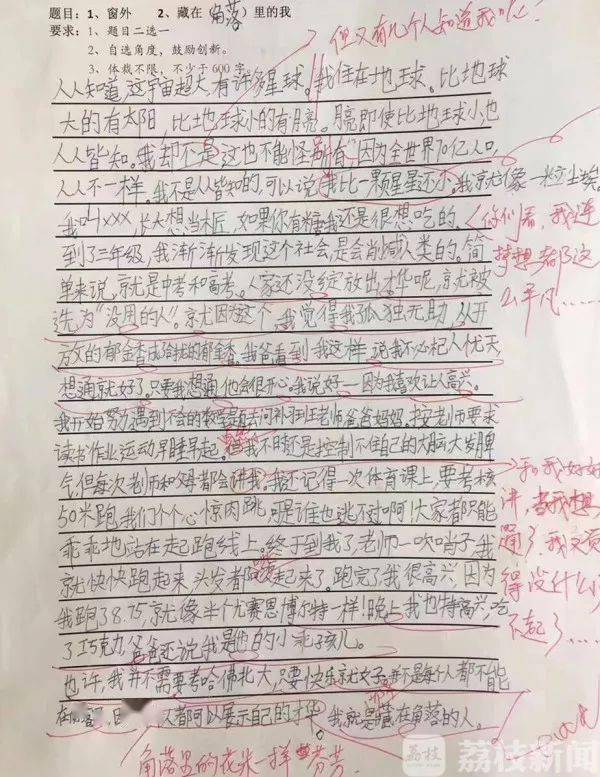 题目：1、窗外 2、藏在（角落）里的我
要求：1、题目二选一
2、自选角度，鼓励创新。
3、体裁不限，不少于600字
但又有几个人知道我呢！
人人知道，这宇宙超大有许多星球。我住在地球。比地球
大的有太阳，比地球小的有月亮。月亮即使比地球小，也
人人皆知。我却不是这也不能怪别有，因为全世界70亿人口，
人人不一样。我不是人皆知的，可以说我比一颗星星还小。我就像一粒尘埃。
我叫xxx，长大想当木匠，如果你有糖我还是很想吃的。
你们看，我连梦想都这么平凡……
到了三年级，我渐渐发现这个社会，是会消灭人类的。简
单来说，就是中考和高考。人家还没绽放出才华呢，就被
选为“没用的人”。就因为这个，我觉得我孤独无助，从开
放的郁金香成枯枝的郁金香。我爸看到我这样，说我不必杞人忧天，
想通就好了。只要我想通，他会很开心。我说好—因为我喜欢让人高兴。
我开始努力，遇到不会的数学题去问补习班老师爸爸妈妈。按老师要求
读书作业运动早睡早起。但我不时还是控制不住自己的大脑大发脾
气，但每次老师和父母都会讲我。我还记得一次体育课上，要考核
50米跑，我们个个心惊肉跳，可是谁也逃不对啊！大家都只能
乖乖地站在起跑线上。终于到我了，老师一吹哨子，我
就快快跑起来，头发都竖起来了。跑完了，我很高兴，因为
我跑了8.75，就像半个尤赛恩博尔特一样！晚上我也特高兴，吃
了巧克力，爸爸还说我是他的小乖孩儿。
也许，我并不需要考哈佛北大，只要快乐就好。并不是每个人都不能
人都可以展示自己的才华。我就是藏在角落的人。
角落里的花朵一样芬芳
荔枝 荔枝新闻